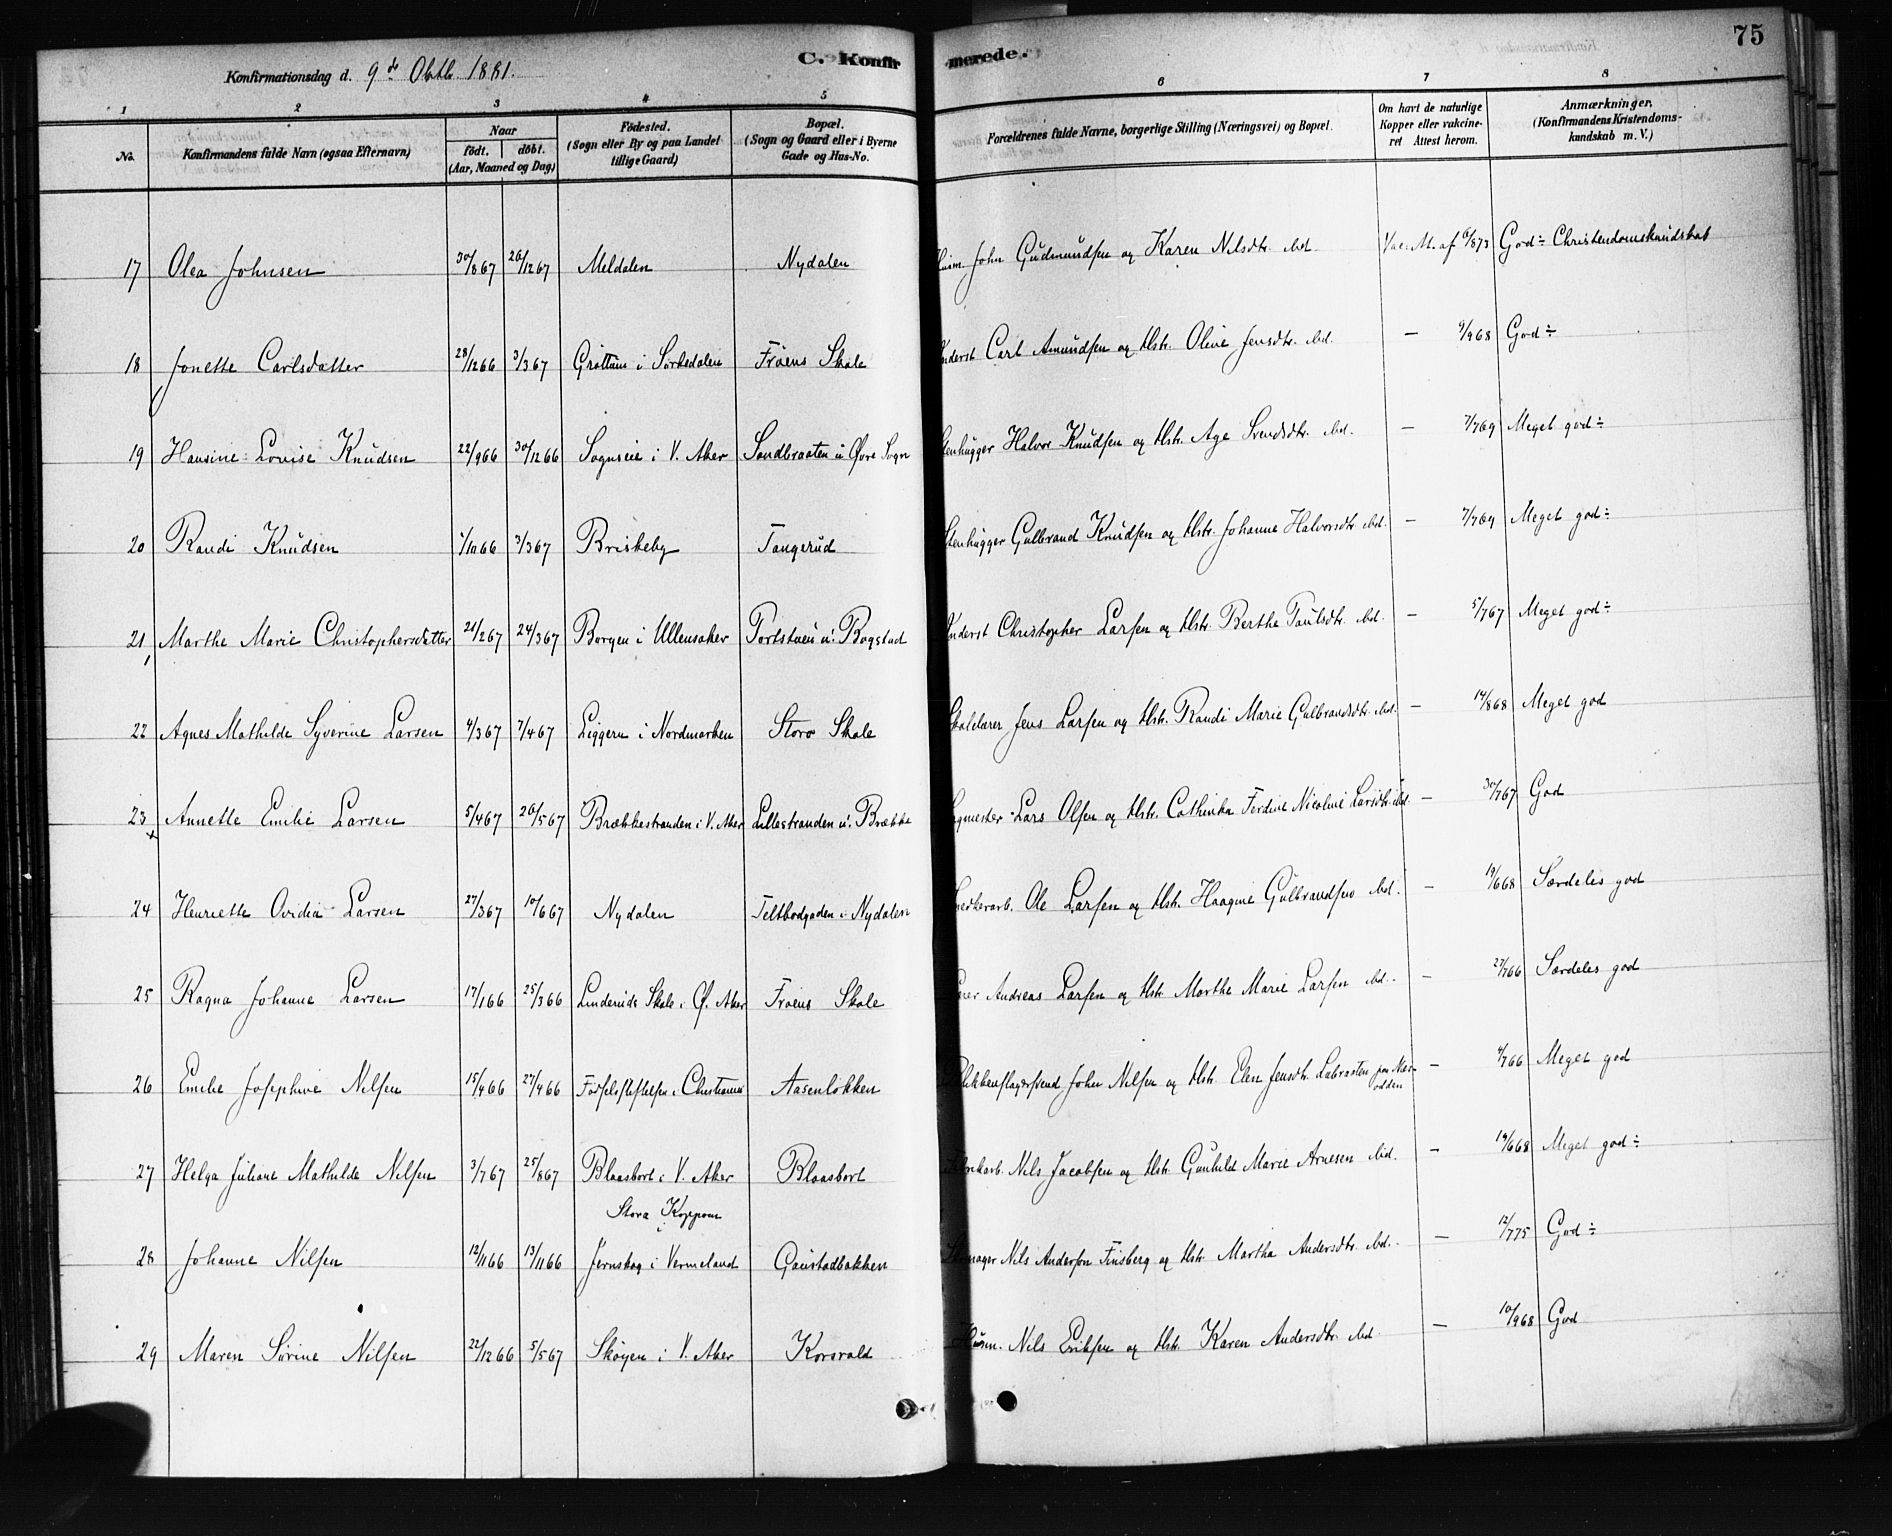 75
C. Konfirmerede.
Konfirmationsdag d. 9de Oktb. 1881.
1 2 3 4 5 6 7 8
No. Konfirmandens fulde Navn (ogsaa Efternavn) Naar født. døbt. (Aar, Maaned og Dag) Fødested. (Sogn eller By og paa Landet tillige Gaard) Bopæl. (Sogn og Gaard eller i Byerne Gade og Hus-No. Forældrenes fulde Navne, borgerlige Stilling (Næringsvei) og Bopæl. Om havt de naturlige Kopper eller vakcineret Attest herom. Anmærkninger. (Konfirmandens Kristendomskundskab m. V.)
17 Olea Johnsen 30/867 26/1267 Meldalen Nydalen Husm. John Gudmundsen og Karen Nilsdtr. ibd. Vac. At. af 6/873 God ÷ Christendomskundskab
18 Jonette Carlsdatter 28/1266 3/367 Grøttum i Sørkedalen Frøens Skole Inderst Carl Amundsen og Hstr. Olive Jensdtr. ibd. — 9/968 God ÷
19 Hansine Lovise Knudsen 22/966 30/1266 Sognseie i V. Aker Sandbraaten u. Øvre Sogn Stenhugger Halvor Knudsen og Hstr. Age Svendsdtr. ibd. — 7/769 Meget god ÷
20 Randi Knudsen 1/1066 3/367 Briskeby Tangerud Stenhugger Gulbrand Knudsen og Hstr. Johanne Halvorsdtr. ibd. — 7/769 Meget god ÷
21 Marthe Marie Christophersdatter 21/267 24/367 Borgen i Ullensaker Portstuen u. Bogstad Inderst Christopher Larsen og Hstr. Berthe Paulsdtr. ibd. — 5/767 Meget god ÷
22 Agnes Mathilde Syverine Larsen 4/367 7/467 Liggern i Nordmarken Storo Skole Skolelærer Jens Larsen og Hstr. Randi Marie Gulbrandsdtr. ibd. — 14/868 Meget god
23 Annette Emilie Larsen 5/467 26/567 Brækkestranden i V. Aker Lillestranden u. Brække Lars Olsen og Hstr. Cathinka Ferdine Nicoline Larsdtr. ibd. — 30/767 God
24 Henriette Ovidia Larsen 27/367 10/667 Nydalen Teltbodgaden i Nydalen Ole Larsen og Hstr. Haagine Gulbrandsen ibd. — 19/668 Særdeles god
25 Ragna Johanne Larsen 17/166 25/366 Linderuds Skole i Ø. Aker Frøens Skole Lærer Andreas Larsen og Hstr. Marthe Marie Larsen ibd. — 27/766 Særdeles god
26 Emilie Josephine Nilsen 15/466 27/466 Fødselsstiftelsen i Christiania Aasenløkken Blikkenslagersvend John Nilsen og Hstr. Elen Jensdtr. Labraaten paa Næsodden — 4/766 Meget god
27 Helga Juliane Mathilde Nilsen 3/767 25/867 Blaasbort i V. Aker Blaasbort Fabrikarb. Nils Jacobsen og Hstr. Gunhild Marie Arnesen ibd. — 19/668 Meget god ÷
28 Johanne Nilsen 12/1166 13/1166 Stora Koppom i Jernskog i Vermeland Gaustadbakken Skomager Nils Anderson Finsberg og Hstr. Martha Andersdtr. ibd. — 12/775 God ÷
29 Maren Sørine Nilsen 22/1266 5/567 Skøyen i V. Aker Korsvold Husm. Nils Eriksen og Hstr. Karen Andersdtr. ibd. — 10/968 God